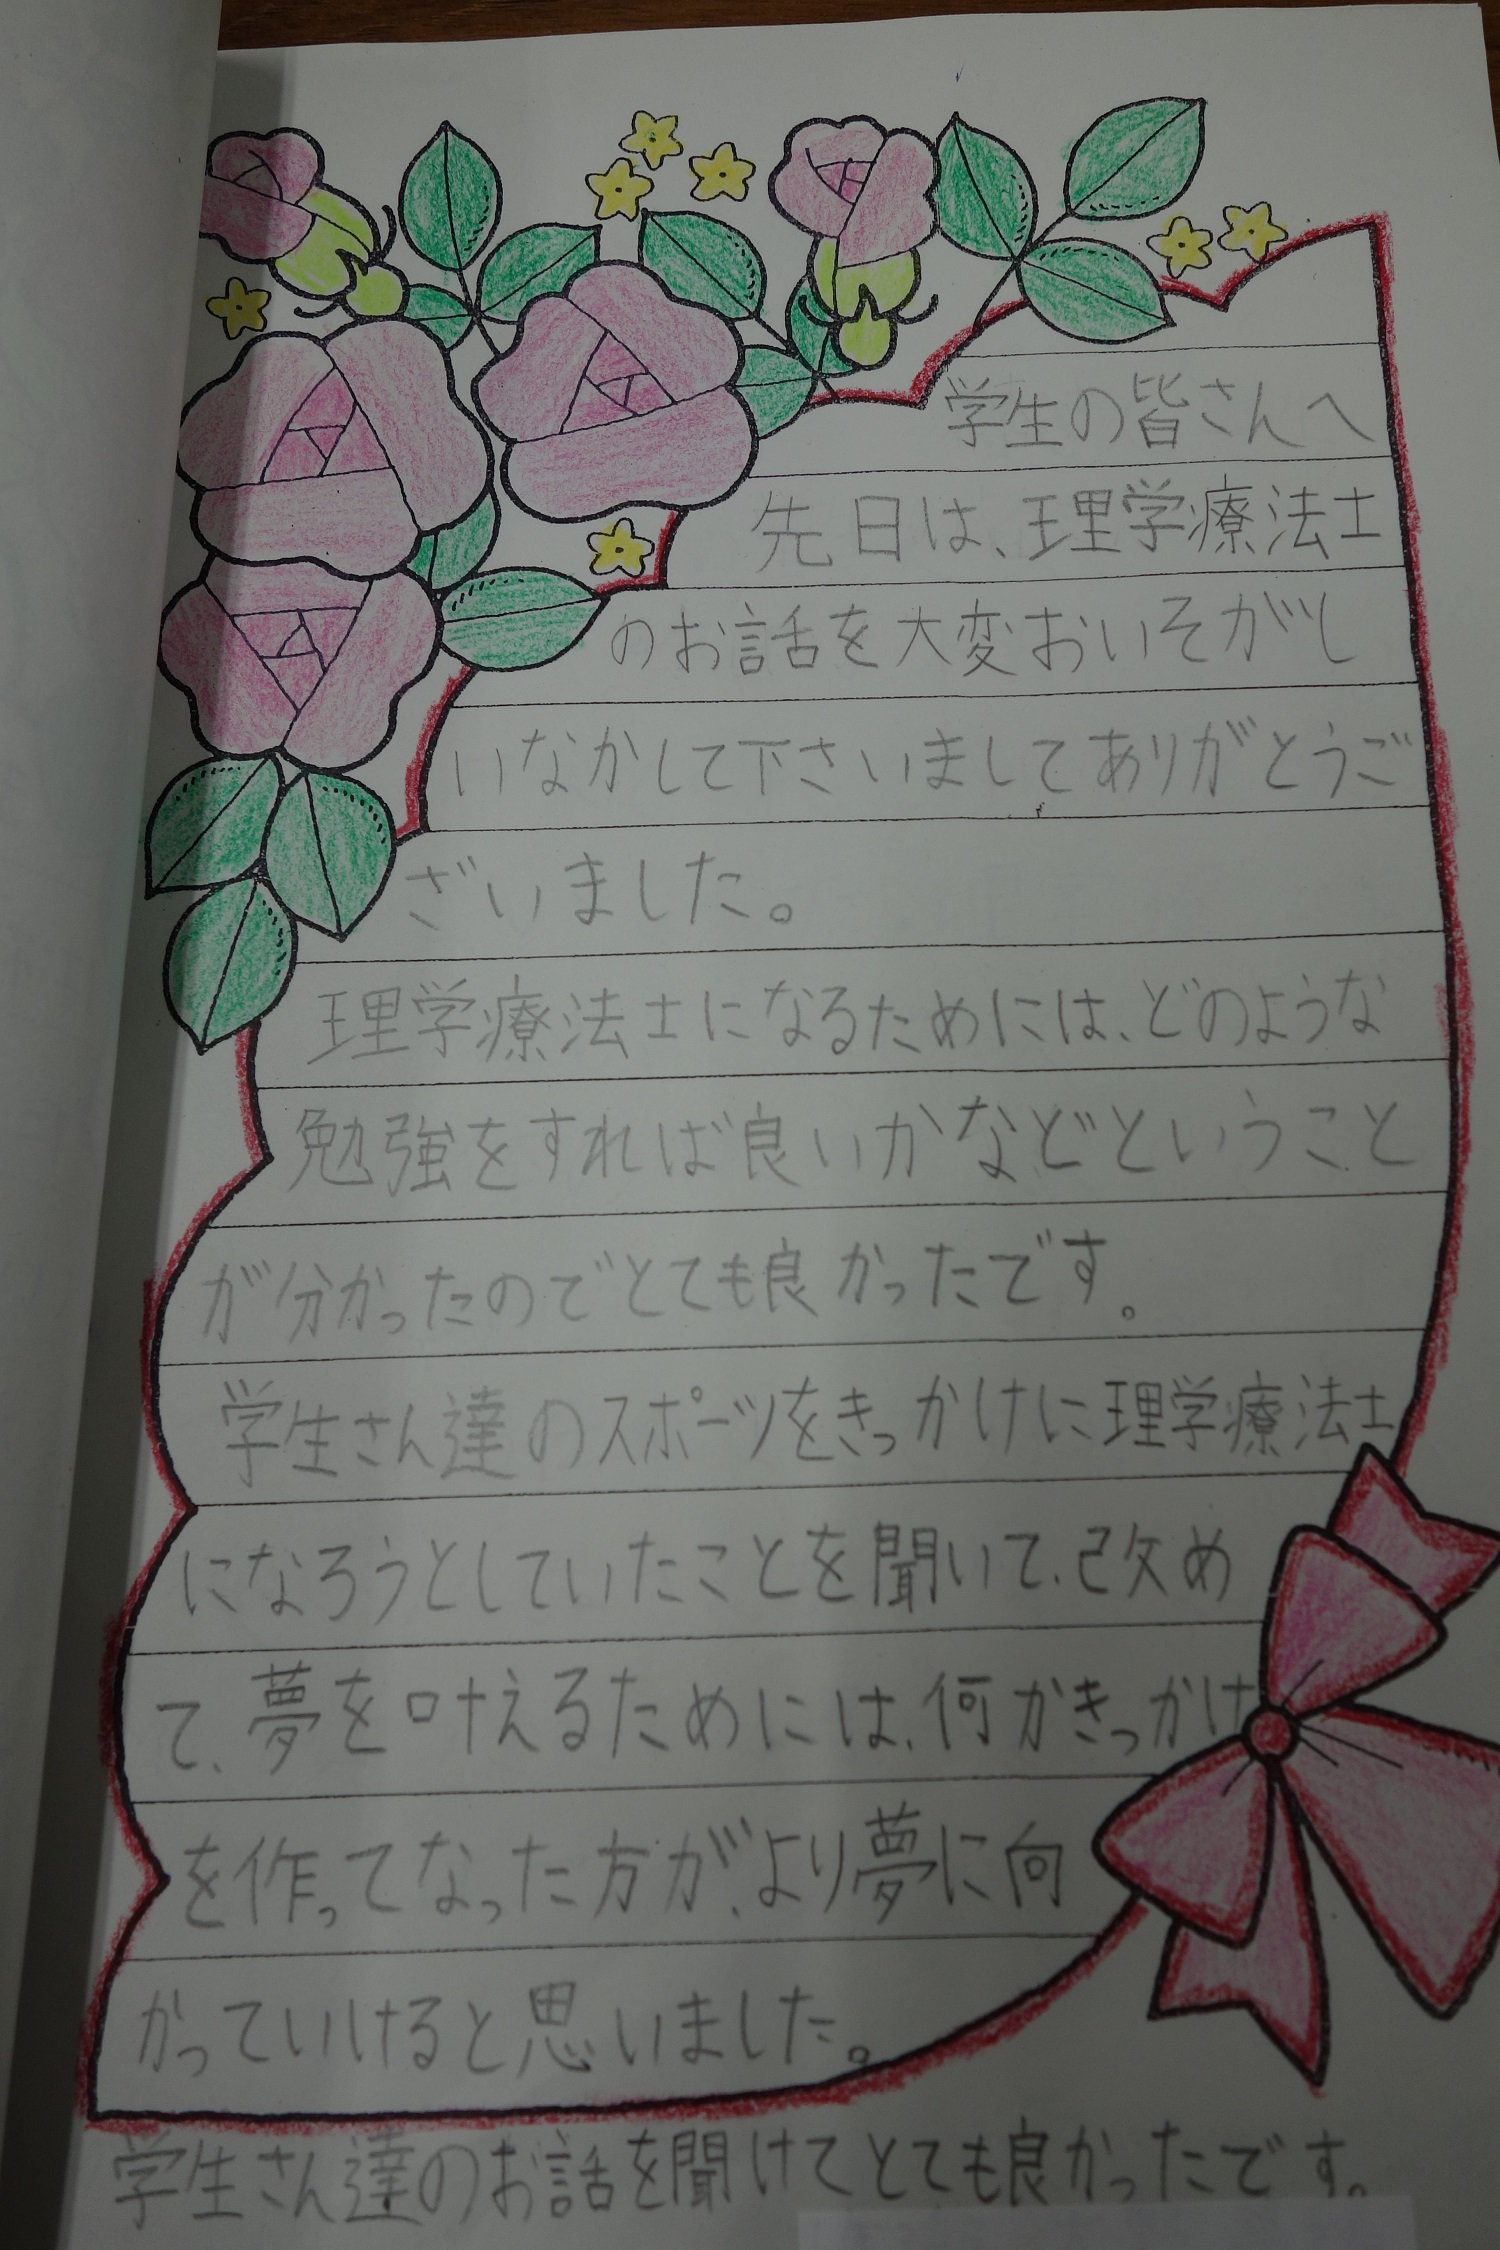 学生の皆さんへ
先日は、理学療法士
のお話を大変おいそがし
いなかして下さいましてありがとうご
ざいました。
理学療法士になるためには、どのような
勉強をすれば良いかなどということ
が分かったのでとても良かったです。
学生さん達のスポーツをきっかけに理学療法士
になろうとしていたことを聞いて、改め
て、夢を叶えるためには、何かきっかけ
を作ってなった方が、より夢に向
かっていけると思いました。
学生さん達のお話を聞けてとても良かったです。